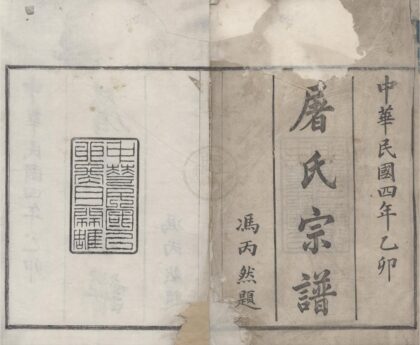 中華民國四年乙卯
屠氏宗譜
馮丙然題